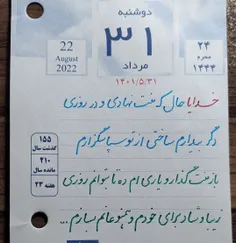 دوشنبه
22
August
2022
۳۱
مرداد
۲۴
محرم
۱۴۴۴
۱۴۰۱/۵/۳۱
خدایا حال که منت نهادی و در روزی
دگر بیدارم ساختی از تو سپاسگزارم
۱۵۵
گذشت سال
۲۱۰
مانده سال
هفته ۲۳
باز منت گذار و یاری ام ده تا بتوانم روزی
زیبا و شاد برای خودم و همنوعانم بسازم...